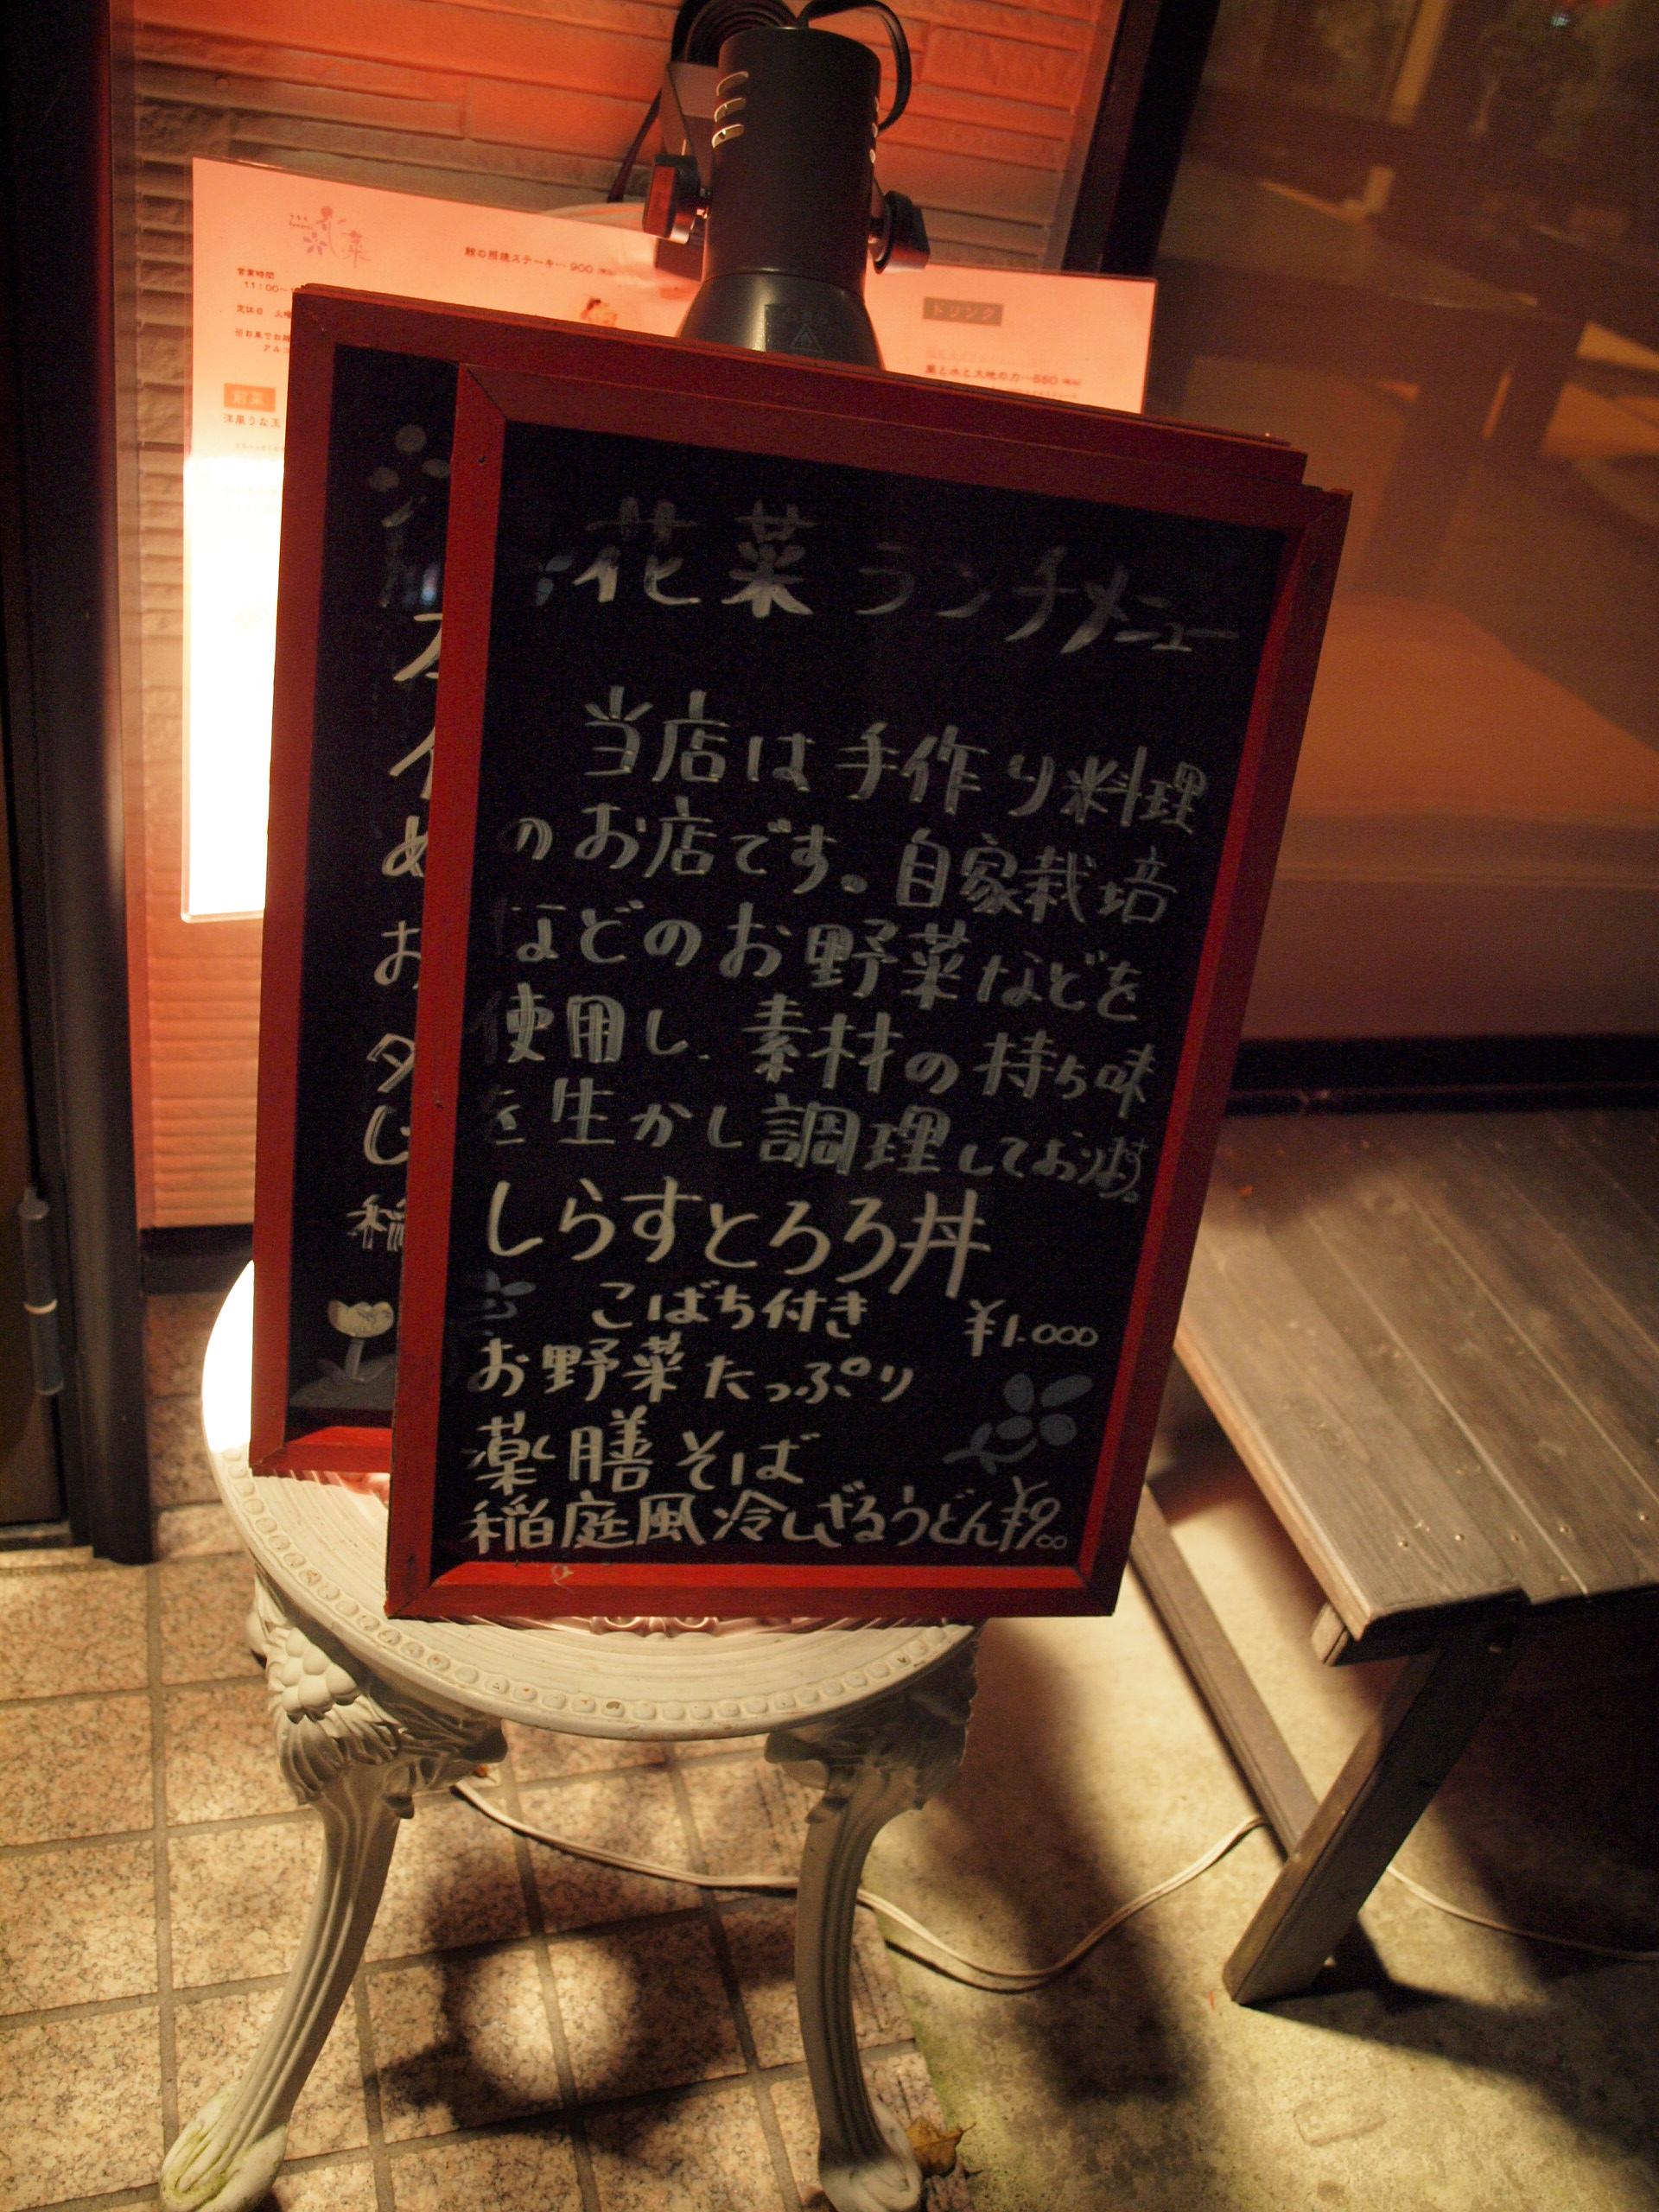 花菜
鮑の照焼ステーキ…900
営業時間
11:00~
定休日 火曜
ドリンク
風と水と大地の力…550
前菜
洋風うな玉
花菜 ランチメニュー
当店は手作り料理
のお店です。自家栽培
などのお野菜などを
使用し、素材の持ち味
を生かし調理しております。
しらすとろろ丼
こばち付き ¥1.000
お野菜たっぷり
薬膳そば
稲庭風冷しざるうどん¥900
め
お
タ
し
稲